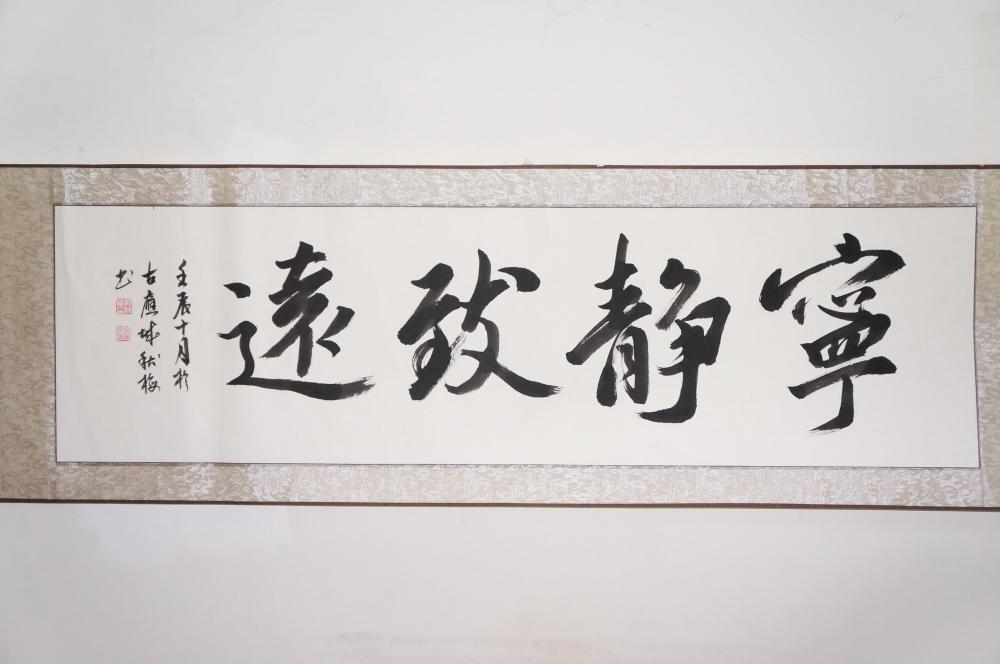 寧靜致遠
壬辰十月於
古應城秋梅
书